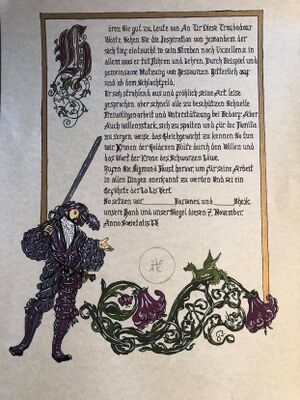 Hören Sie gut zu, Leute von An Tir Diese Troubadour
Worte. Sehen Sie die Inspiration von jemandem der
sich tief eintaucht in sein Streben nach Exzellenz in
allem was er tut Führen und Lehren, Durch Beispiel und
gemeinsame Nutzung von Ressourcen Ritterlich auf
und ab dem Schlachtfeld.
Er sah strahlend aus und fröhlich seine Art leise
gesprochen, aber schnell alle zu beschützen Schnelle
Freiwilligenarbeit und Unterstützung bei Bedarf Aber
Auch willensstark, sich zu spalten und für die Familie
zu siegen, weise, das Gleichgewicht zu kennen So tun
wir Kronen der Goldenen Küste durch den Willen und
das Wort der Krone des Schwarzen Löwe,
Rufen Sie Sigmund Faust hervor, um für seine Arbeit
in allen Dingen anerkannt zu werden Und sei ein
Gefährte der La Lis Vert.
So setzen wir Barones, und
unsere Hand und unser Siegel diesen 7. November.
Anno Societatis LV